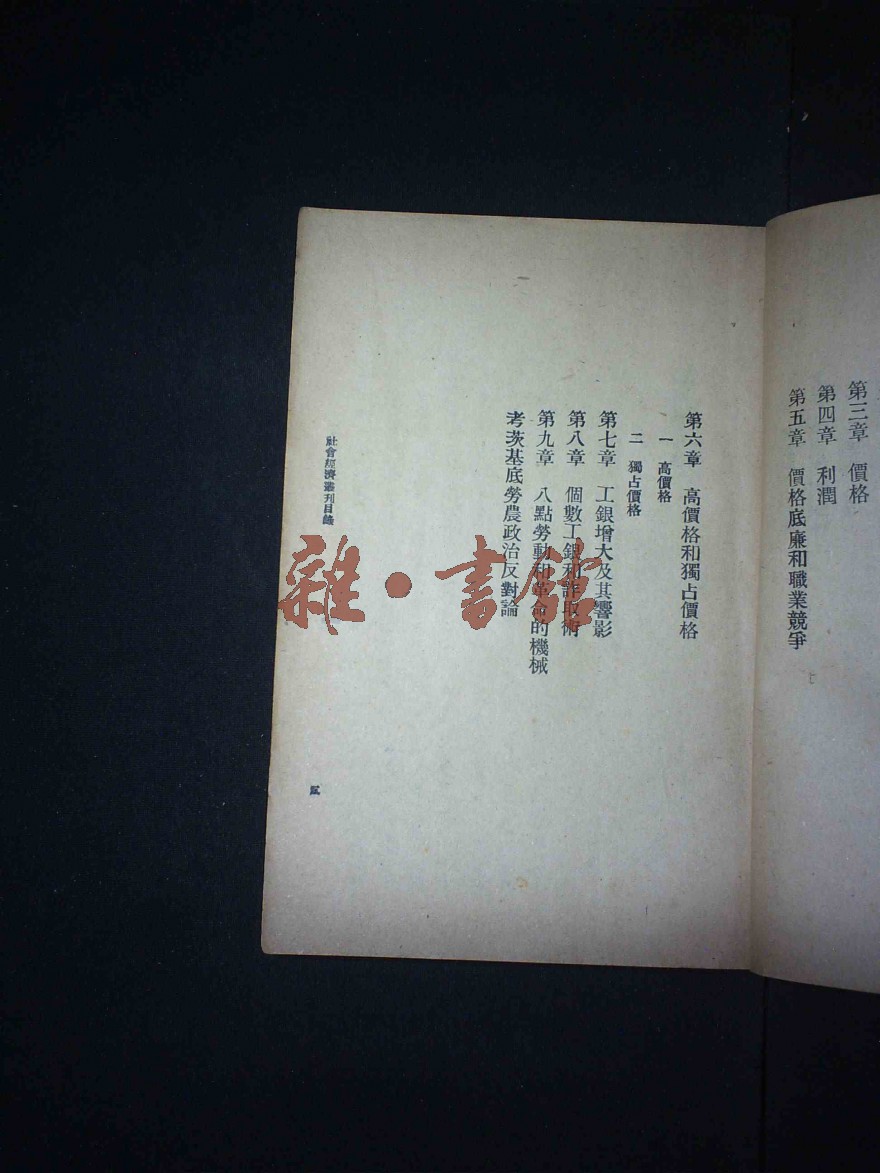 第三章　價格
第四章　利潤
第五章　價格底廉和職業競爭
第六章　高價格和獨占價格
一　高價格
二　獨占價格
第七章　工銀增大及其響影
第八章　個數工銀和詐取術
第九章　八點勞動和革命的機械
考茨基底勞農政治反對論
社會經濟叢刊目錄
五
雜·書館